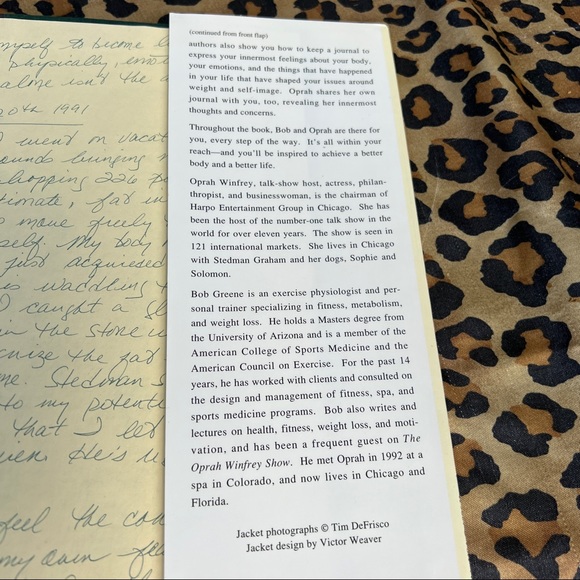 myself to become
physically,
alone isn't the
20th 1991
I went on vacat
ounds bringing
shopping 226
timate, fat
move freely
self. My body
just acquired
is waddling
I caught a
in the store
the fat
me. Stedman
to my potenti
that I let
He's
feel the con
my own
(continued from front flap)
authors also show you how to keep a journal to
express your innermost feelings about your body,
your emotions, and the things that have happened
in your life that have shaped your issues around
weight and self-image. Oprah shares her own
journal with you, too, revealing her innermost
thoughts and concerns.
Throughout the book, Bob and Oprah are there for
you, every step of the way. It's all within your
reach—and you'll be inspired to achieve a better
body and a better life.
Oprah Winfrey, talk-show host, actress, philan-
thropist, and businesswoman, is the chairman of
Harpo Entertainment Group in Chicago. She has
been the host of the number-one talk show in the
world for over eleven years. The show is seen in
121 international markets. She lives in Chicago
with Stedman Graham and her dogs, Sophie and
Solomon.
Bob Greene is an exercise physiologist and per-
sonal trainer specializing in fitness, metabolism,
and weight loss. He holds a Masters degree from
the University of Arizona and is a member of the
American College of Sports Medicine and the
American Council on Exercise. For the past 14
years, he has worked with clients and consulted on
the design and management of fitness, spa, and
sports medicine programs. Bob also writes and
lectures on health, fitness, weight loss, and moti-
vation, and has been a frequent guest on The
Oprah Winfrey Show. He met Oprah in 1992 at a
spa in Colorado, and now lives in Chicago and
Florida.
Jacket photographs © Tim DeFrisco
Jacket design by Victor Weaver